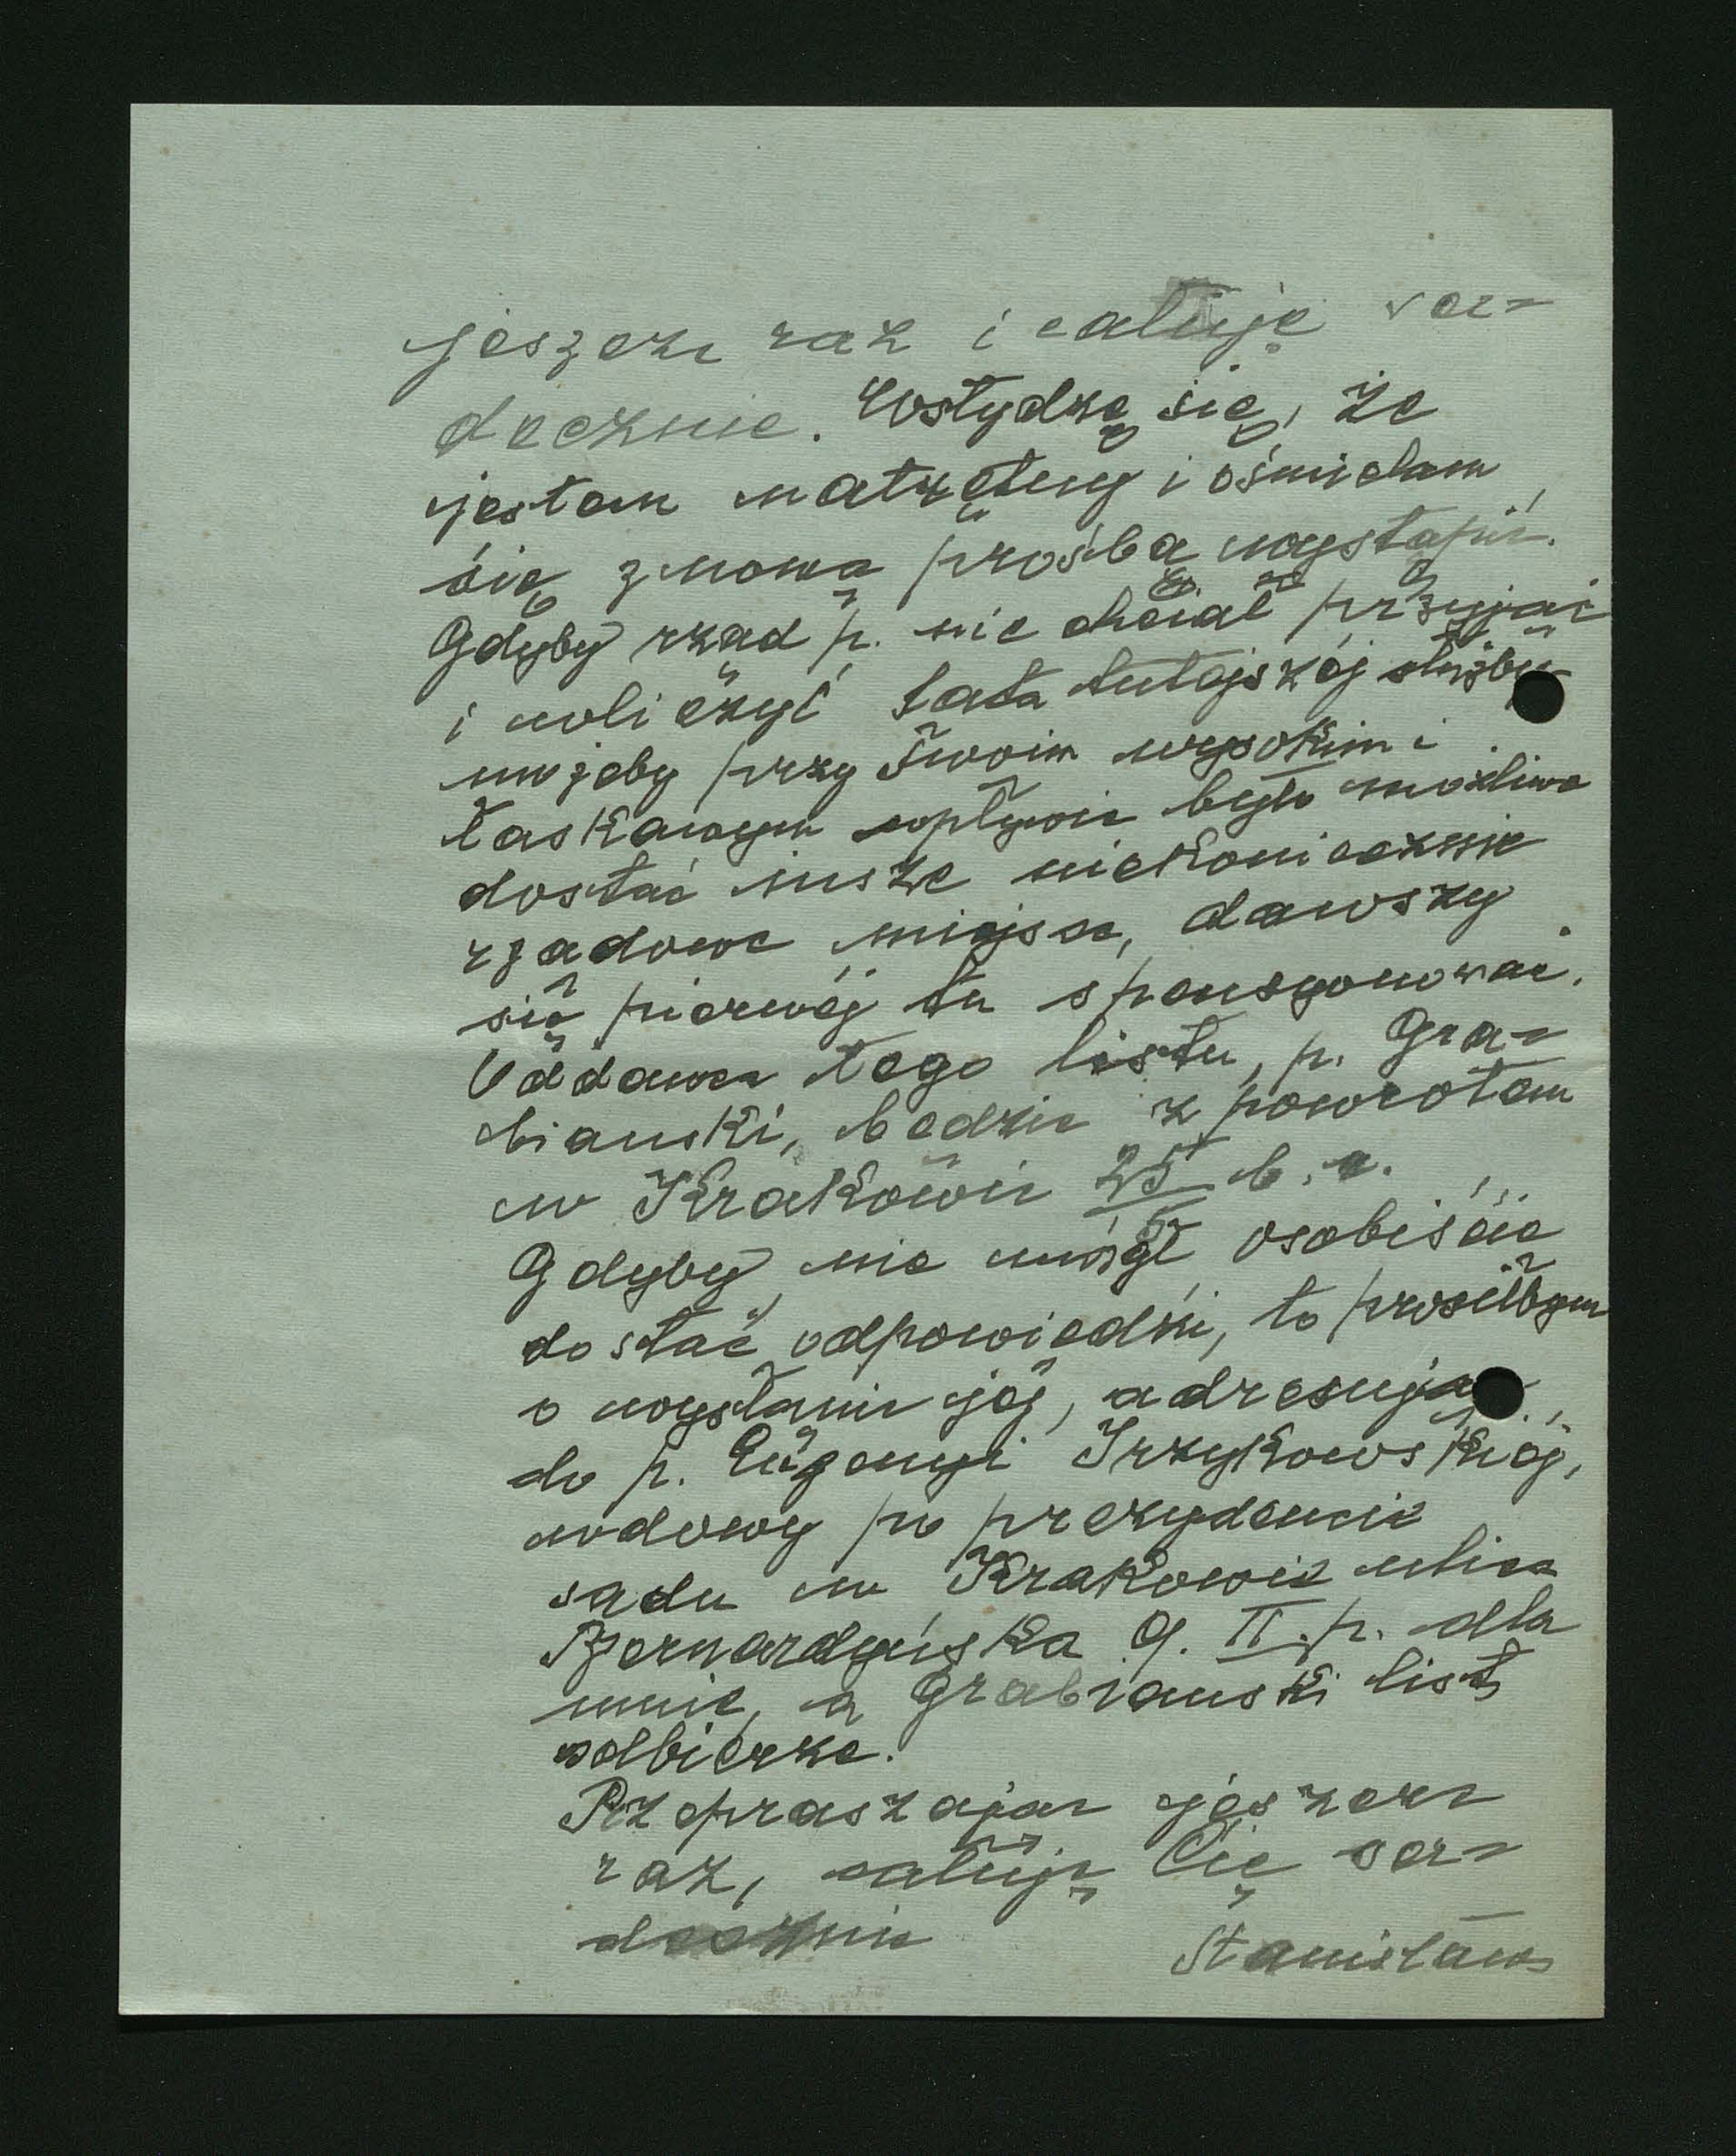 jeszcze raz i całuję ser-
decznie. Wstydzę się, że
jestem natrętny i ośmielam
się z nową prośbą wystąpić.
Gdyby rząd p. nie chciał przyjąć
i wliczyć lata tutejszéj służby
możeby przy Twoim wysokim i
łaskawym wpływie było możliwe
dostać insze niekoniecznie
rządowe miejsce, dawszy
się pierwéj tu spensyonować.
Oddawca tego listu, p. Gra-
bianski, będzie z powrotem
w Krakowie 25 b. m.
Gdyby nie mógł osobiście
dostać odpowiedzi, to prosiłbym
o wysłanie jéj, adresując
do p. Eugenyi Irzykowskiéj,
wdowy po prezydencie
sądu w Krakowie ulica
Bernardyńska 9. II. p. dla
mnie, a Grabianski list
odbierze.
Przepraszając jeszcze
raz, całuję Cię ser-
decznie
Stanisław